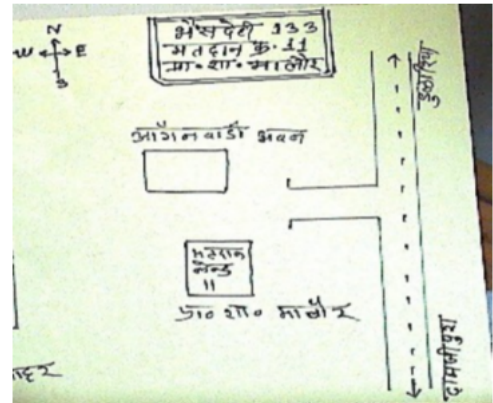 N
W E
S
भैंसदेही 133
मतदान कु. 11
प्रा॰ शा॰ मालोर
आँगनवाडी भवन
मतदान
केन्द्र
11
प्रा॰ शा॰ मालोर
दामजीपुरा